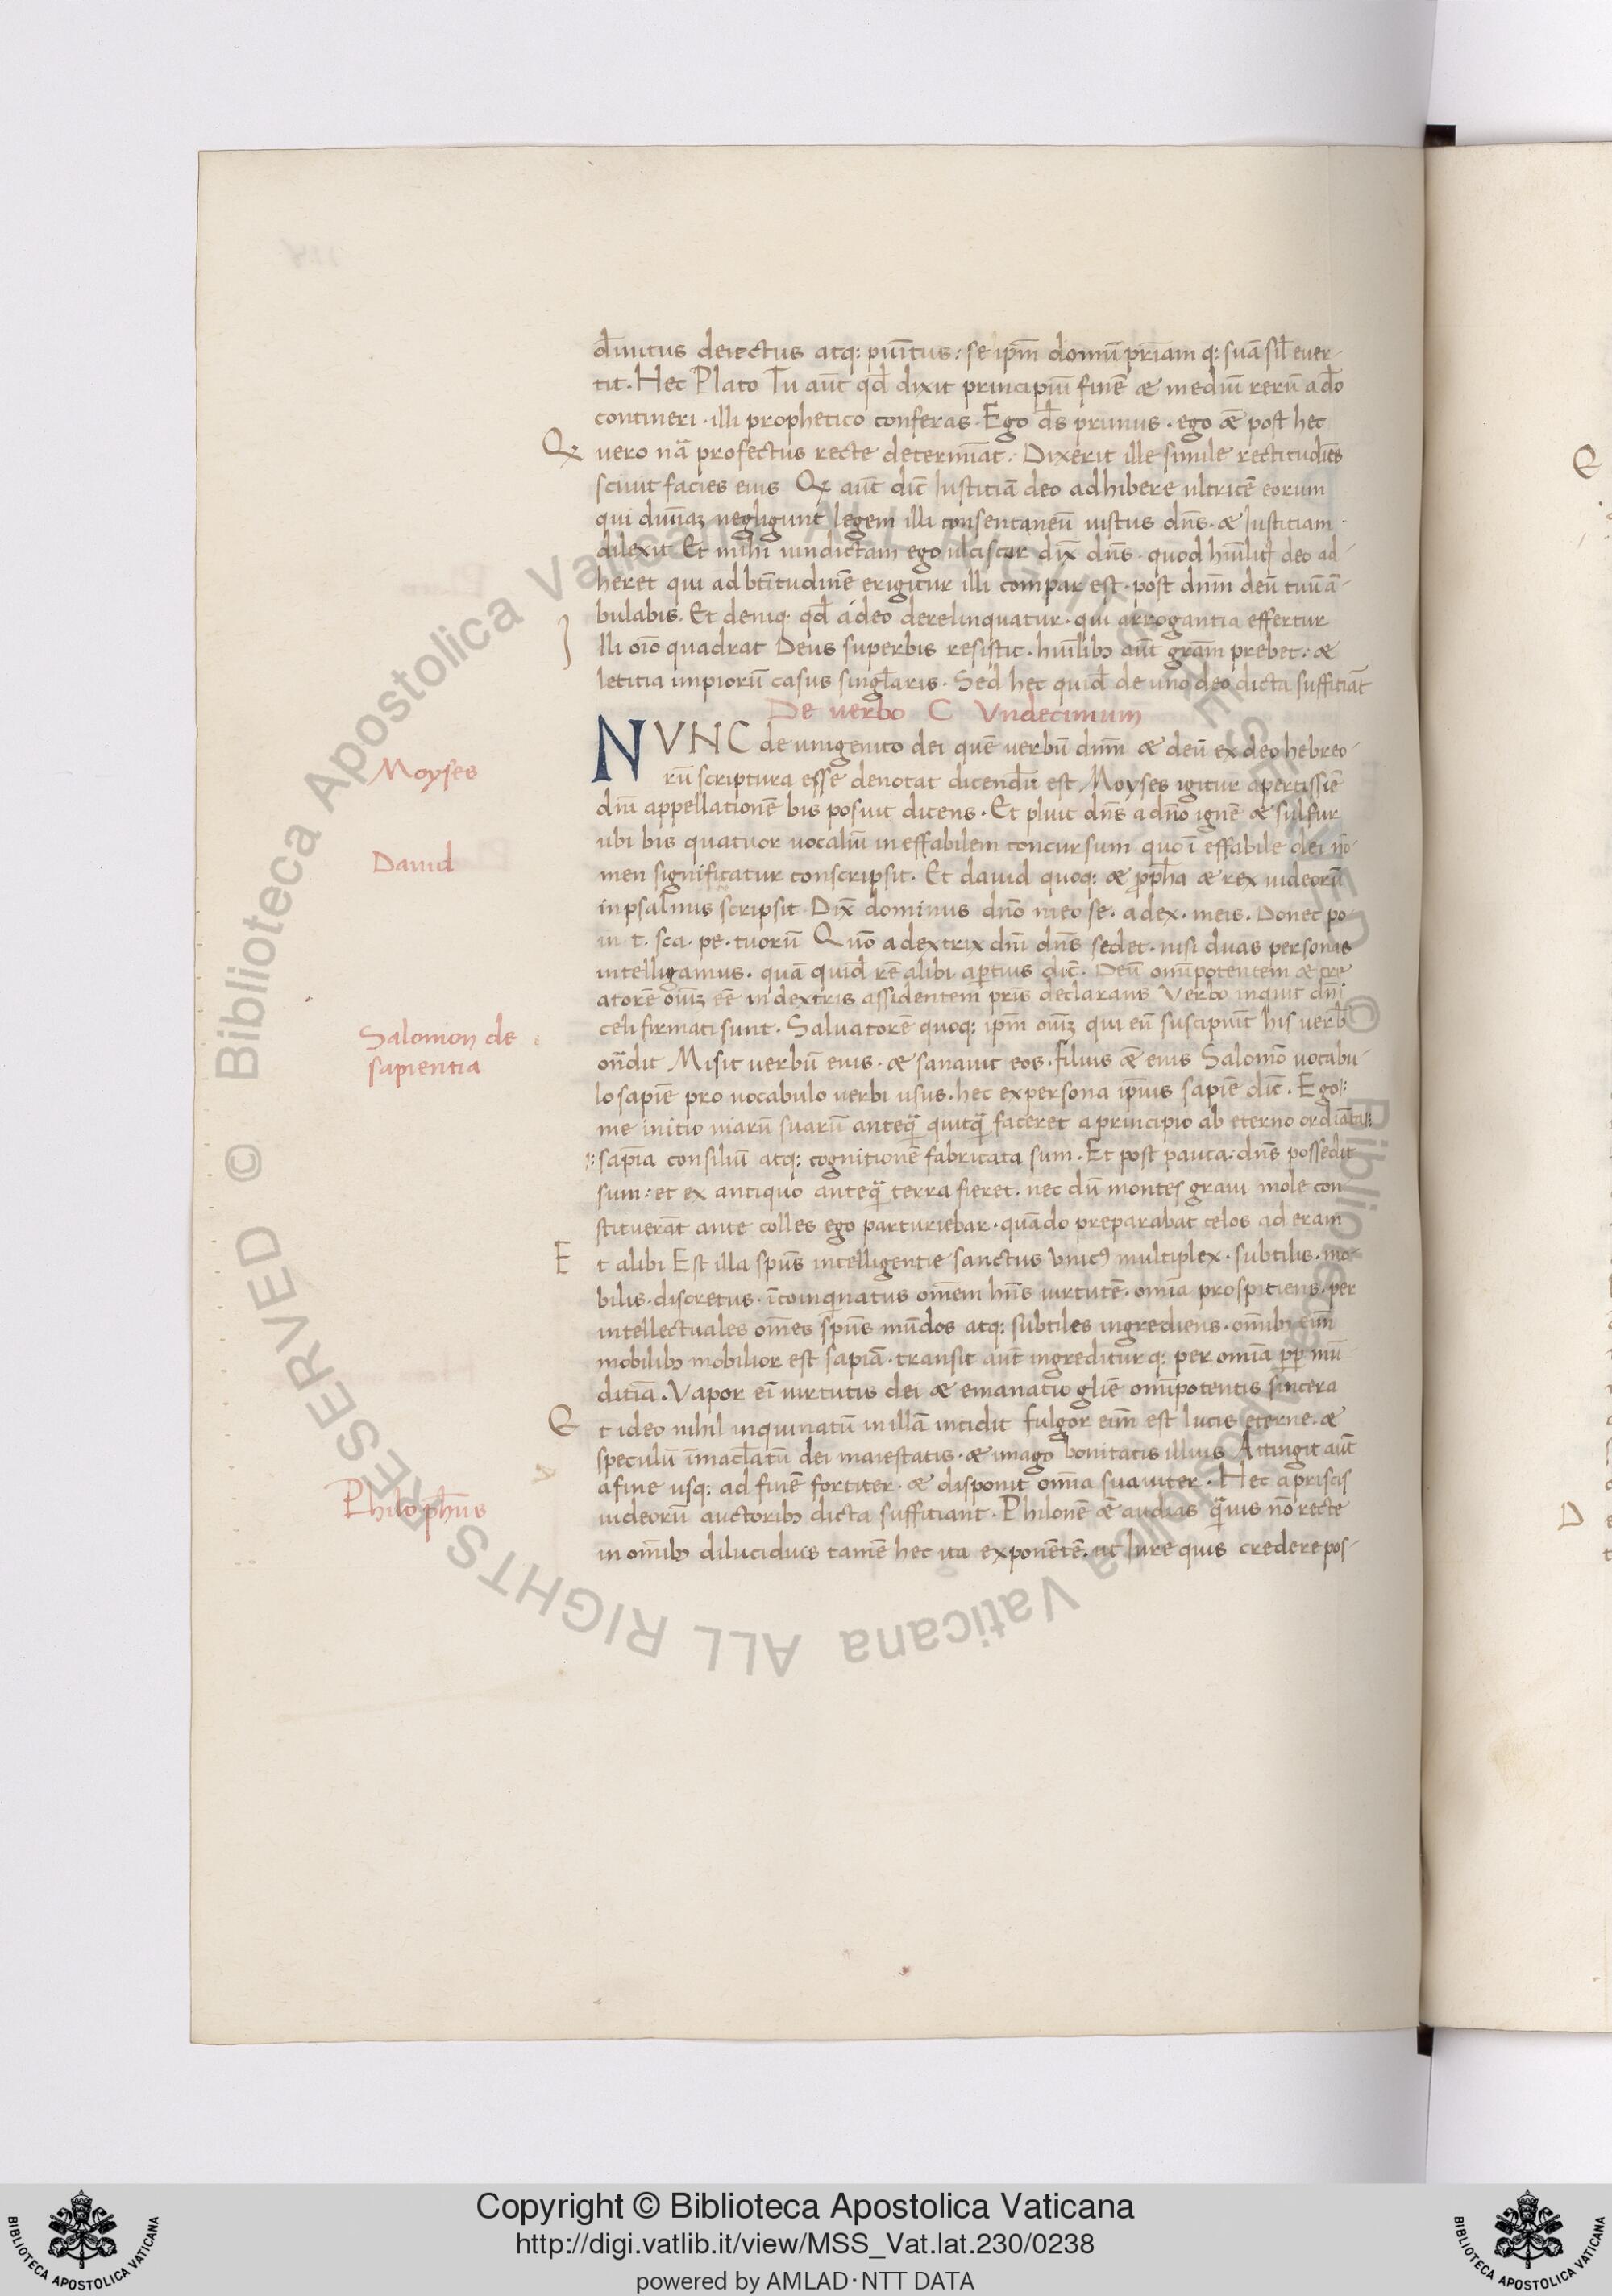 d̄iuitus deiectus atq: pūitus: se ip̄m domū pr̄iam q: suā sil̄ euer-
tit. Hec Plato Tu aūt qđ dixit principiū finē æ mediū rerū a dō
contineri. illi prophetico conferas. Ego d̄s primus. ego ǣ post hec
Q uero nā profectus recte determīat. Dixerit ille simile rectitudīes
sciuit facies eius Q aūt dic̄ Justitiā deo adhibere ultricē eorum
qui diuīaꝫ negligunt legem illi consentaneū iustus dn̄s. æ Justitiam
dilexit Et mihi uindictam ego ulciscor dix̄ dn̄s. quod hūilit deo ad-
heret qui ad bt̄itudinē erigitur illi compar est. post dn̄m deū tuū ā-
bulabis. Et deniq qđ a deo derelinquatur. qui arrogantia effertur
I lli oīo quadrat Deus superbis resistit. hūilibꝫ aūt grām prebet: æ
letitia impiorū casus singl̄aris. Sed hec quid̄ de uno deo dicta sufficiāt
De uerbo C Vndecimum
NVNC de unigenito dei quē uerbū dn̄m æ deū ex deo hebreo-
rū scriptura esse denotat dicendū est Moyses igitur apertissīe
Moyses
dn̄i appellationē bis posuit dicens. Et pluit dn̄s a dn̄o ignē æ sulfur
ubi bis quatuor uocaliū ineffabilem concursum quo ī effabile dei nō-
Dauid
men significatur conscripsit. Et dauid quoq: æ pp̄ha æ rex iudeorū
in psalmis scripsit Dix̄ dominus dn̄o meo se. a dex. meis. Donec po-
in t. sca. pe. tuorū Quō a dextrix dn̄i dn̄s sedet. nisi duas personas
intelligamus. quā quid̄ rē alibi apertius dic̄. Deū omīpotentem æ cre
atorē oīuꝫ eē in dextris assidentem pr̄is declarans Verbo inquit dn̄i
celi firmati sunt. Saluatorē quoq: ip̄m oīuꝫ qui eū suscipiūt his uerb̄
Salomon de
sapientia
on̄dit Misit uerbū eius. æ sanauit eos. filius ǣ eius Salomō uocabu-
lo sapiē pro uocabulo uerbi usus. hec ex persona ip̄ius sapiē dic̄. Ego:
me initio uiarū suarū anteq̄ quicq̄ faceret a principio ab eterno ordīata:
: sap̄ia consiliū atq: cognitionē fabricata sum. Et post pauca: dn̄s possedit
sum: et ex antiquo anteq̄ terra fieret. nec dū montes graui mole con
stituerāt ante colles ego parturiebar. quādo preparabat celos ad eram
E t alibi Est illa spūs intelligentie sanctus vnic9 multiplex. subtilis. mo-
bilis. discretus. īcoinquinatus om̄em hn̄s uirtutē. omīa prospitiens. per
intellectuales om̄es spūs mūdos atq: subtiles ingrediens. om̄ibꝫ eīm
mobilibꝫ mobilior est sapiā. transit aūt ingrediturq: per omīa pp̄ mū
ditiā. Vapor eī uirtutis dei æ emanatio glīe omīpotentis sincera
E t ideo nihil inquinatū in illā incidit fulgor eīm est lucis eterne. æ
speculū īmacl̄atū dei maiestatis. æ imago bonitatis illius Attingit aūt
a fine usq: ad finē fortiter. æ disponit omīa suauiter. Hec a priscis
Philoph̄us
iudeorū auctoribꝫ dicta sufficiant. Philonē ǣ audias q̄uis nō recte
in om̄ibꝫ dilucidius tamē hec ita exponētē. ut Iure quis credere pos-
Copyright © Biblioteca Apostolica Vaticana
http://digi.vatlib.it/view/MSS_Vat.lat.230/0238
powered by AMLAD·NTT DATA